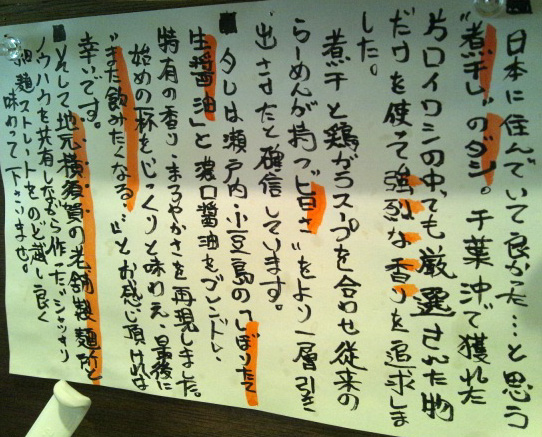 日本に住んでいて良かった…と思う
"煮干し"のダシ。千葉沖で獲れた
片口イワシの中でも厳選された物
だけを使って強烈な香りを追求しま
した。
煮干と鶏ガラスープを合わせ従来の
らーめんが持つ"旨さ"をより一層引き
出させたと確信しています。
■タレは瀬戸内・小豆島の「しぼりたて
生醤油」と濃口醤油をブレンドし、
特有の香り・まろやかさを再現しました。
始めの一杯をじっくりと味わえ、最後に
"また飲みたくなる…"とお感じ頂ければ
幸いです。
■そして地元横須賀の老舗製麺所と
ノウハウを共有しながら作った、シャッキリ
麺ストレートをのど越し良く
味わって下さいませ。